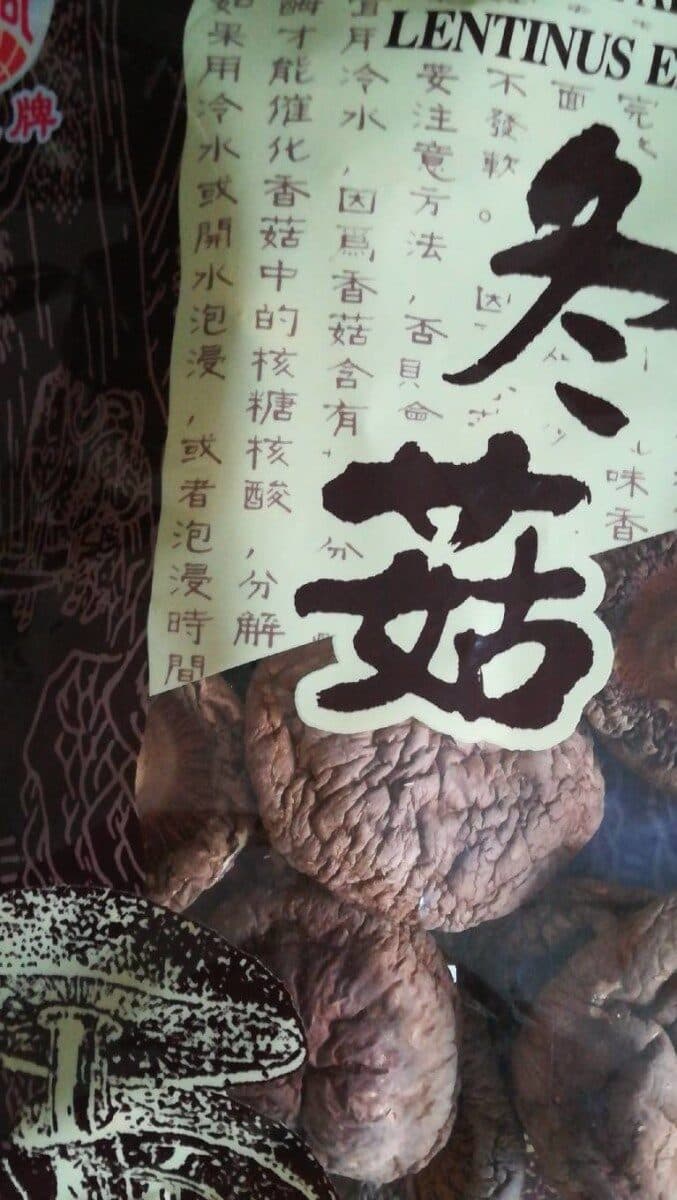 牌
LENTINUS E
冬菇
完
味香
面
不發軟。因
要注意方法，否
用冷水，因爲香菇含有
分
酶才能催化香菇中的核糖核酸，分解
如果用冷水或開水泡浸，或者泡浸時間